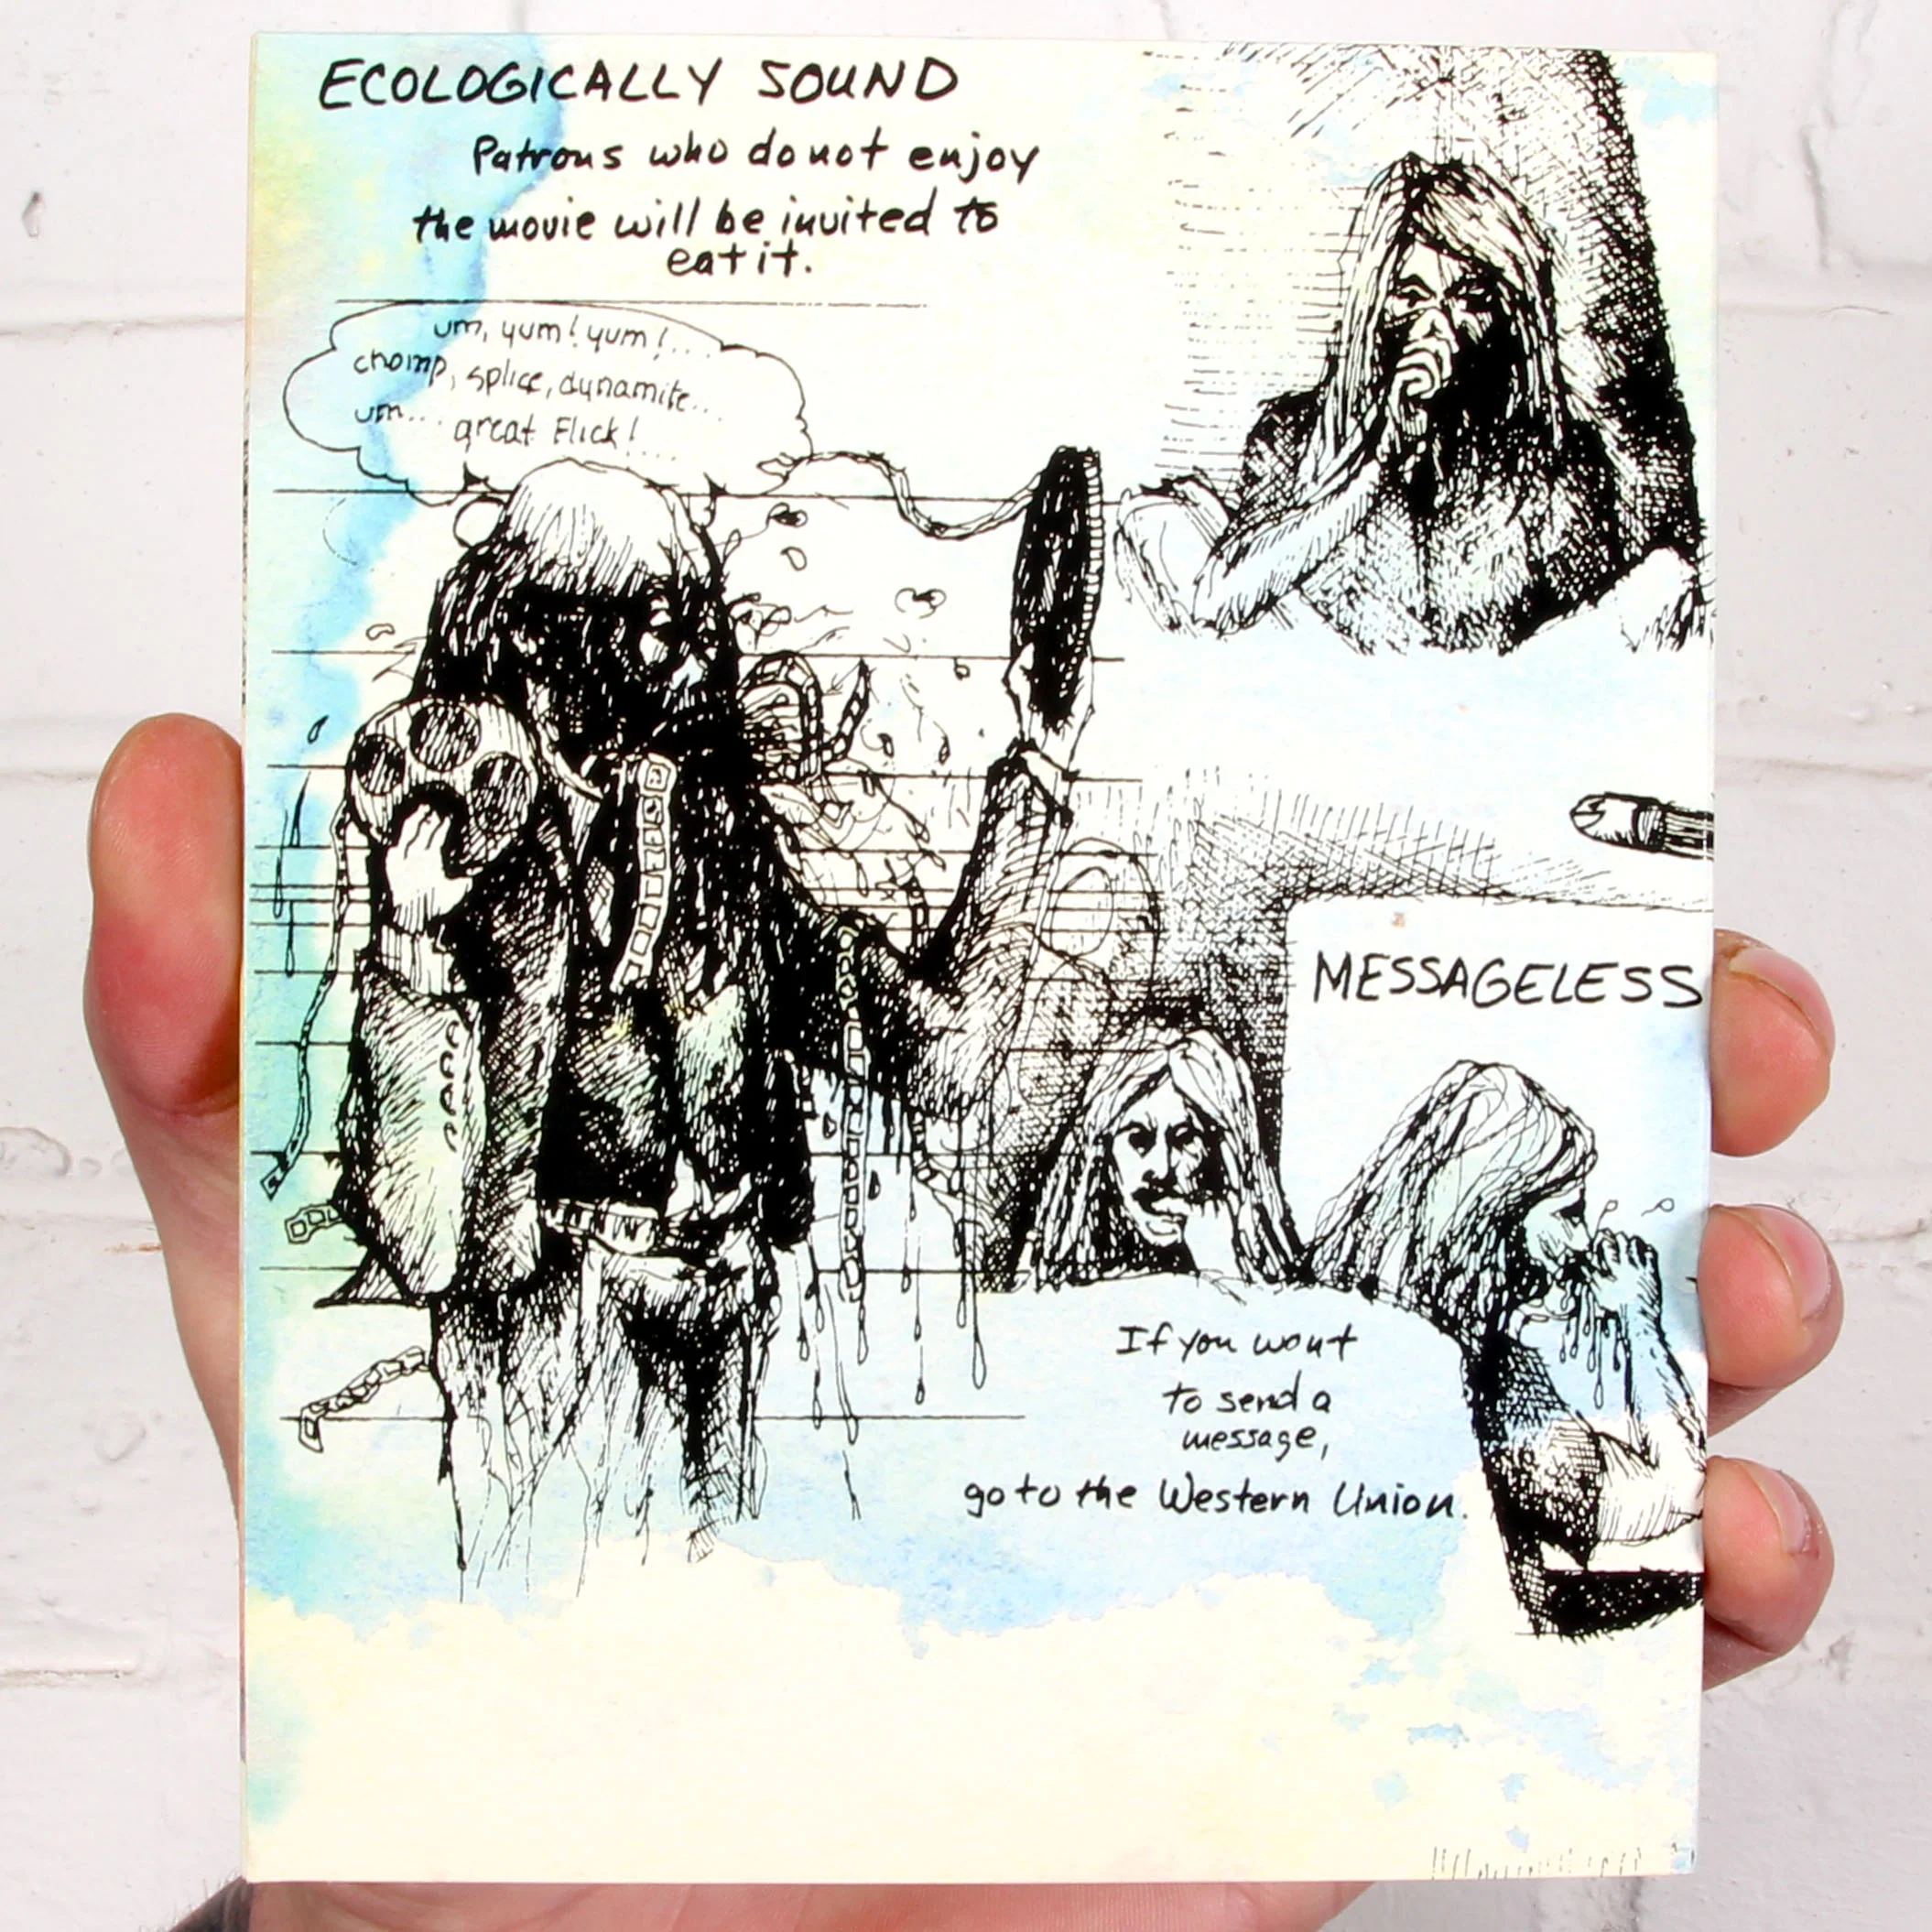 ECOLOGICALLY SOUND
Patrons who do not enjoy
the movie will be invited to
eat it.
um, yum! yum!...
chomp, splice, dynamite...
um.... great Flick!....
MESSAGELESS
If you want
to send a
message,
go to the Western Union.